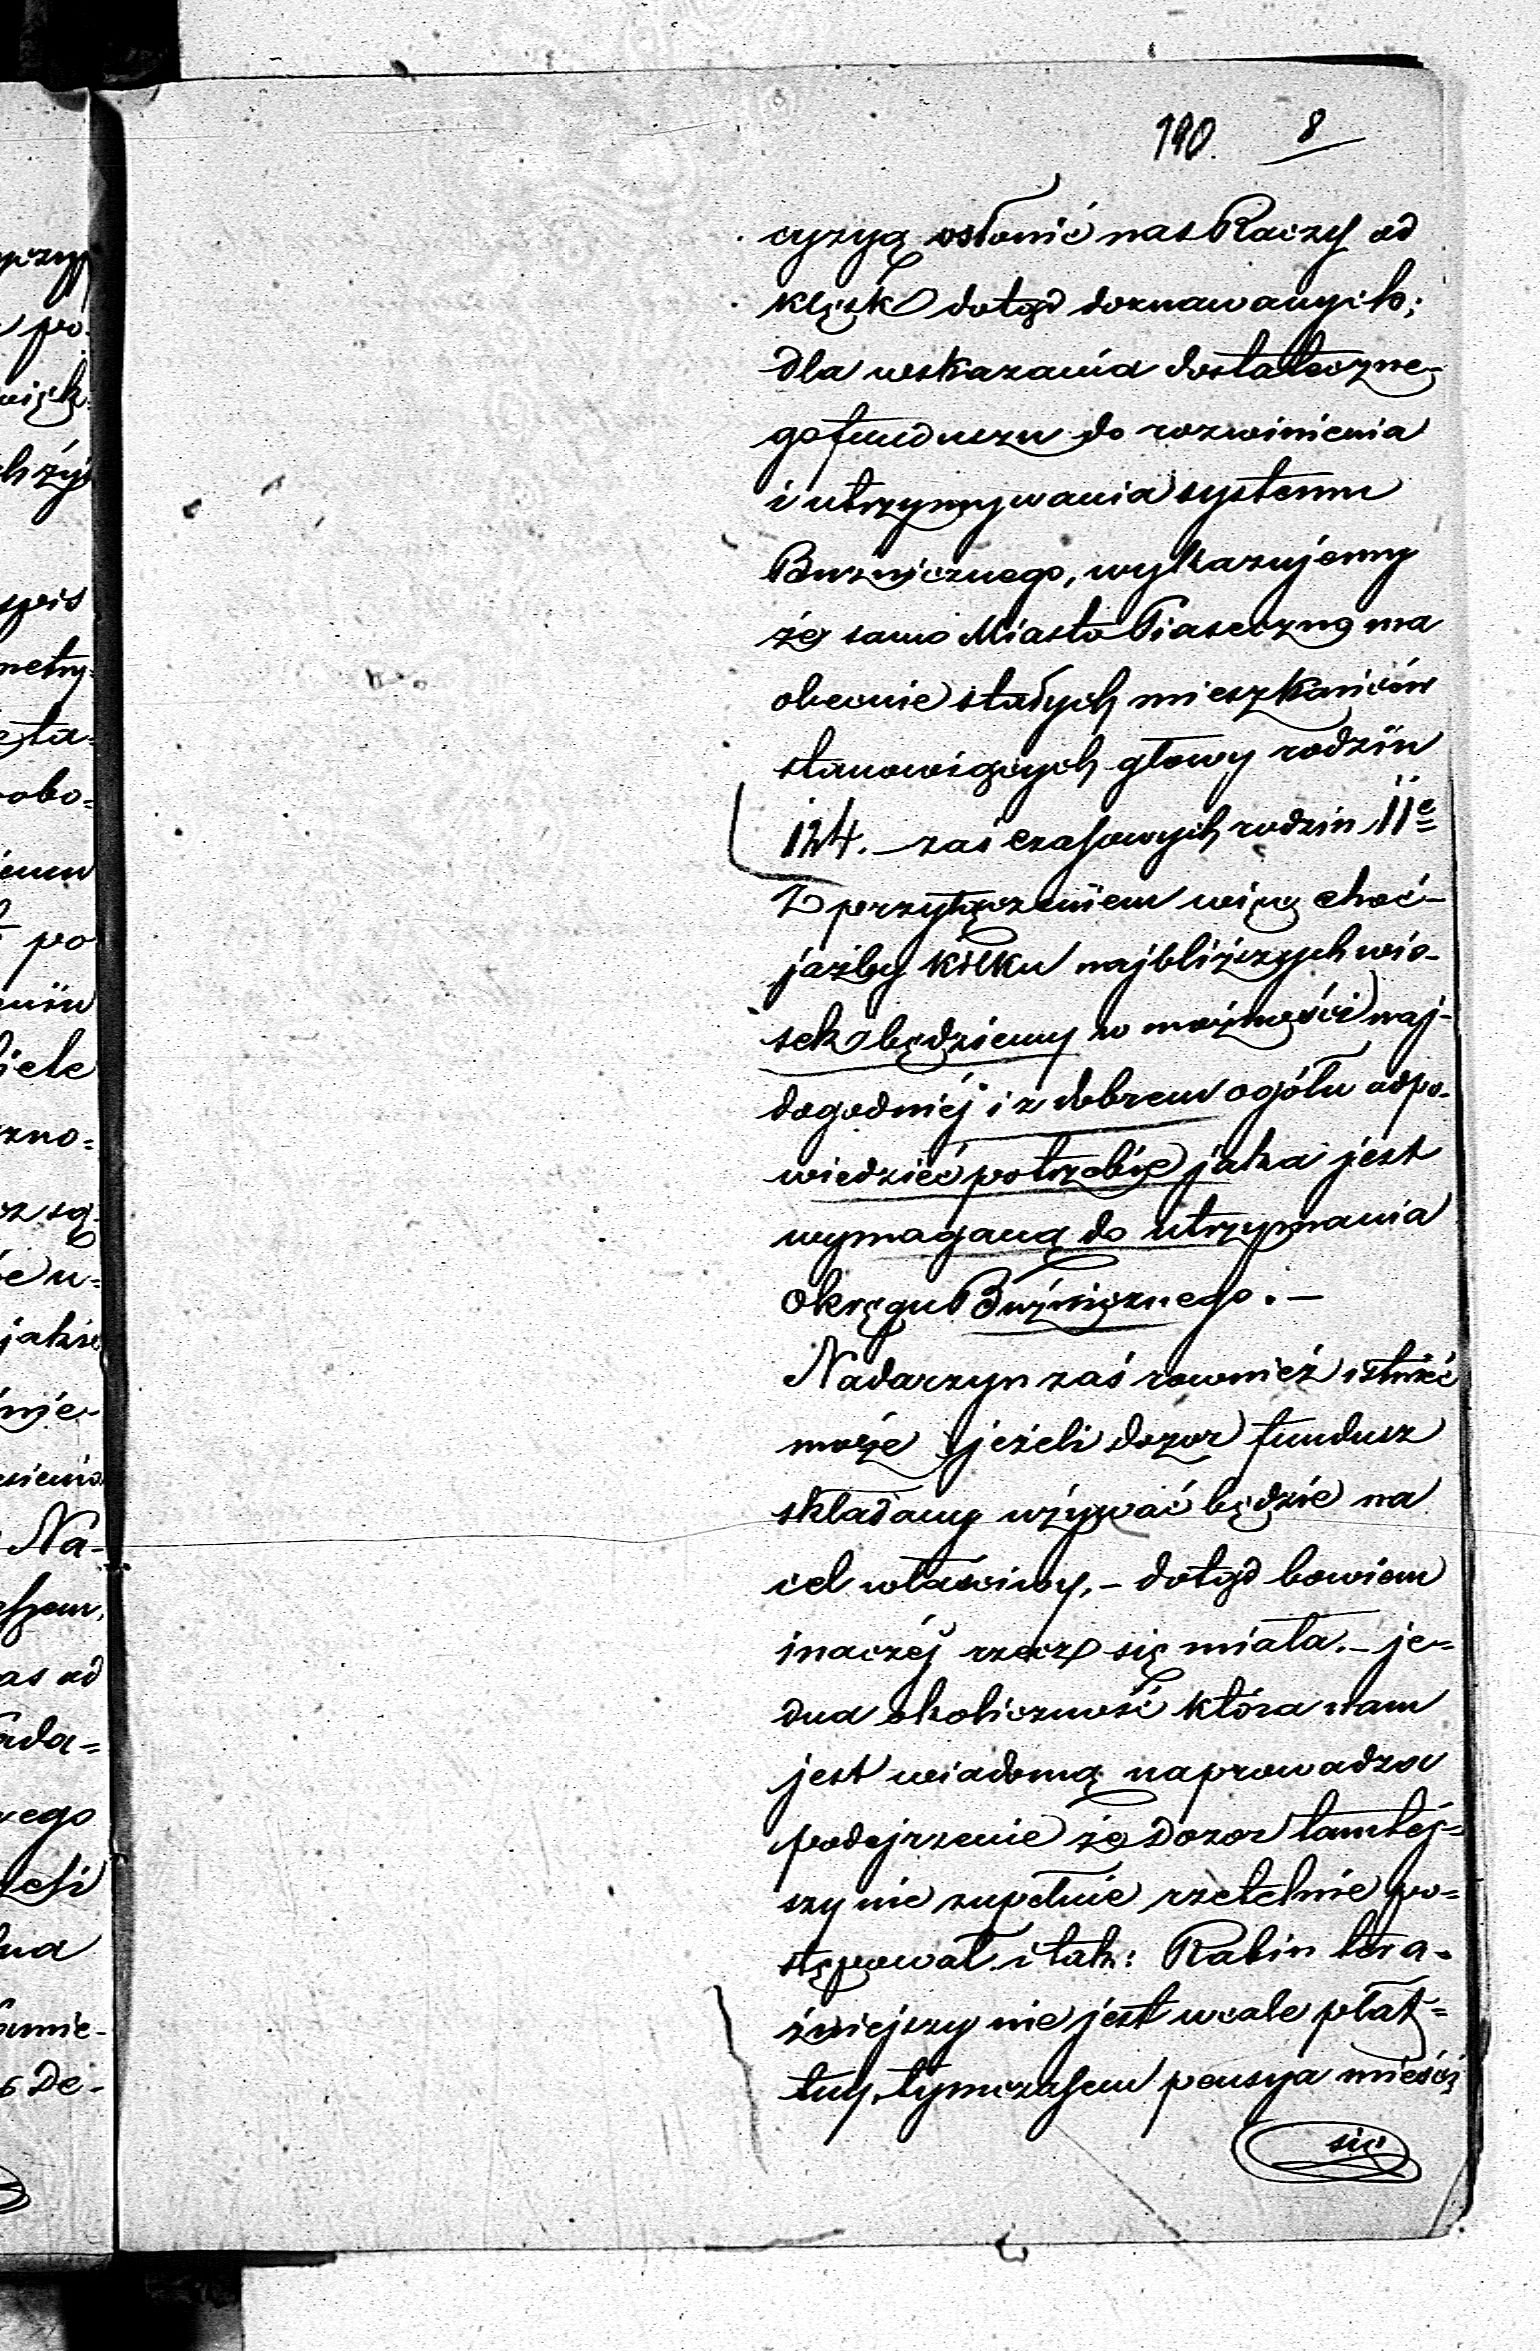 190. 8
cyzyą osłonić nas Raczy od
klęsk dotąd doznawanych;
dla wskazania dostateczne-
go funduszu do rozwinienia
i utrzymywania systemu
Bużnicznego, wykazujemy
że samo Miasto Piaseczno ma
obecnie stałych mieszkańców
stanowiących głowy rodzin
124. – zaś czasowych rodzin 11e
Z przyłączeniem więc choć-
jażby kilku najbliższych wio-
sek będziemy w możności naj-
dogodniéj i z dobrem ogółu odpo-
wiedzieć potrzebie jaka jest
wymaganą do utrzymania
Okręgu Bużnicznego. –
Nadarzyn zaś rownież istnieć
może jeżeli dozor fundusz
składany używać będzie na
cel właściwy, – dotąd bowiem
inaczéj rzecz się miała. – je=
dna okoliczność która nam
jest wiadomą naprowadza
podejrzenie że Dozor tamtej=
szy nie zupełnie rzetelnie po=
stępował i tak: Rabin tera-
źniejszy nie jest wcale płat=
tny, tymczasem pensya mieści
się
pis
metry-
po
biele
zno=
jakie
Na-
as od
ada=
De-